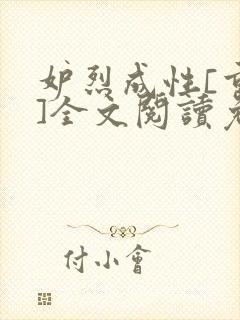 妒烈成性[重
]全文閱讀
付小會